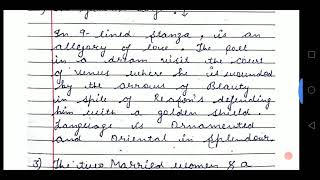 In 9-lined stanza, is an
allegory of love. The poet
in a dream visit the court
of Venus where he is wounded
by the arrows of Beauty
in spite of Reason's defending
him with a golden shield.
Language is Ornamented
and Oriental in Splendour.
3) The two Married women & a